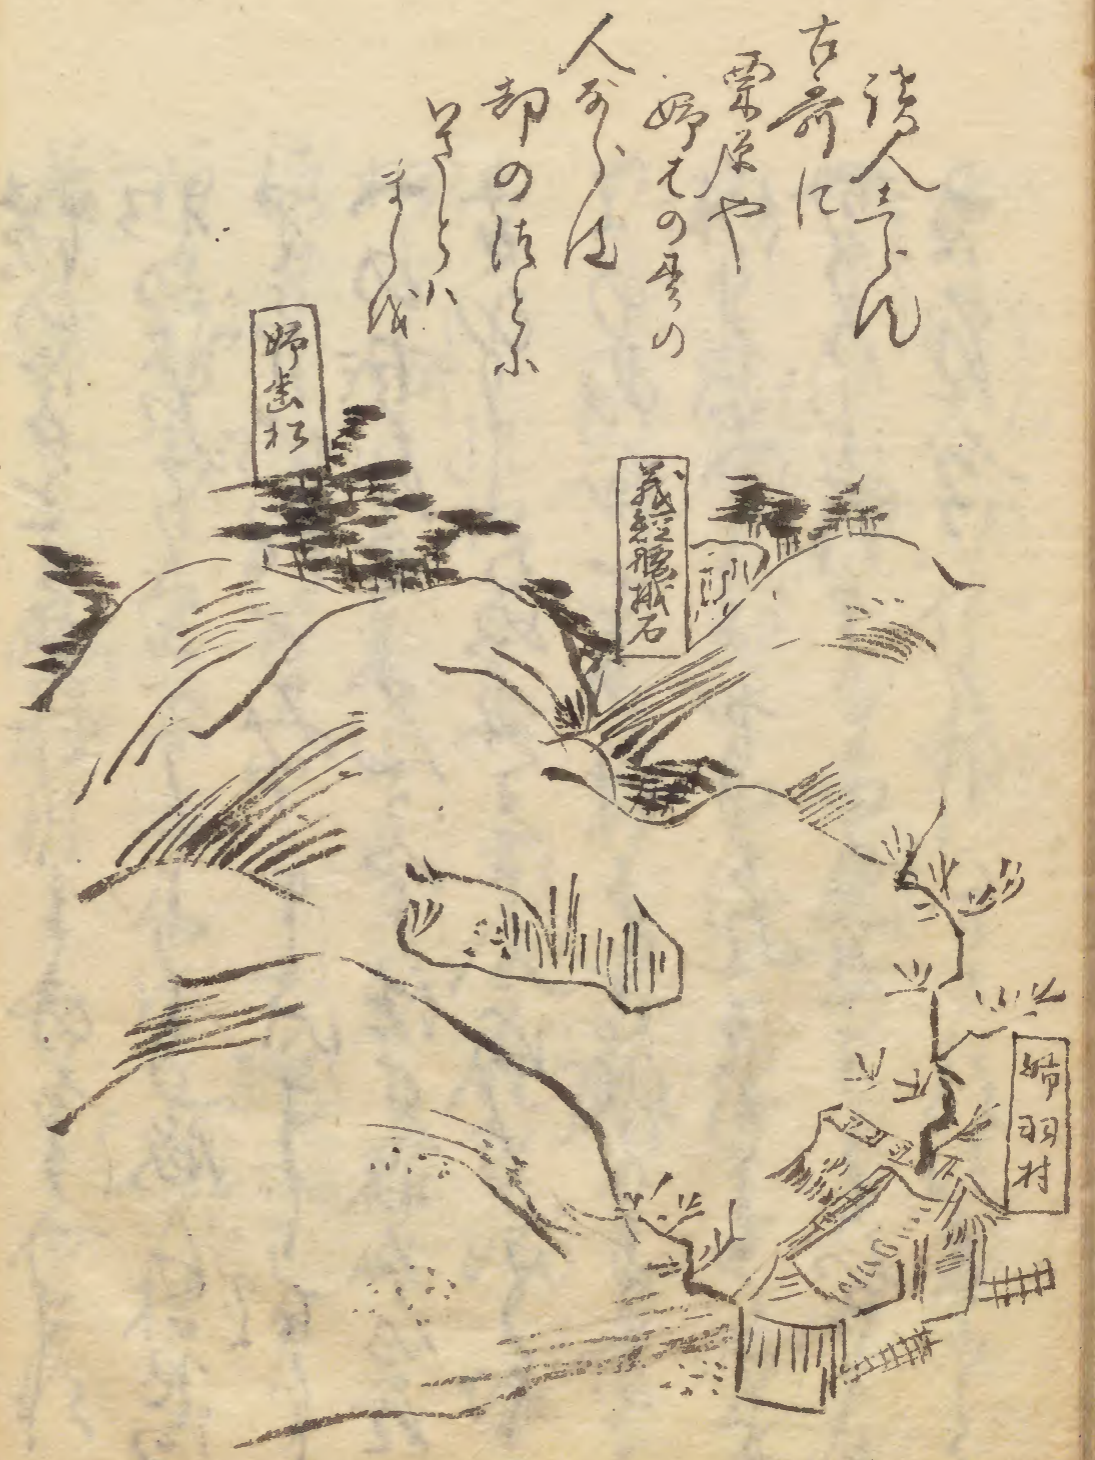 讀人しらす
古哥に
栗原や
姉はの松の
人ならは
都のつとに
いさといハ
ましを
姉歯松
義経腰掛石
姉羽村